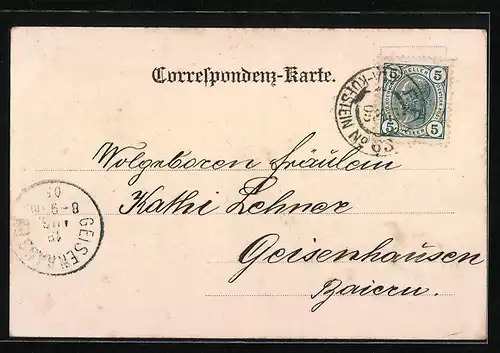 Correspondenz-Karte.
5 5
HELLER
5 5
KUFSTEIN
Wolgeboren Fräulein
Kathi Lehner
Geisenhausen
Baiern.
GEISENHAUSEN
19
AUG.
8-9
03